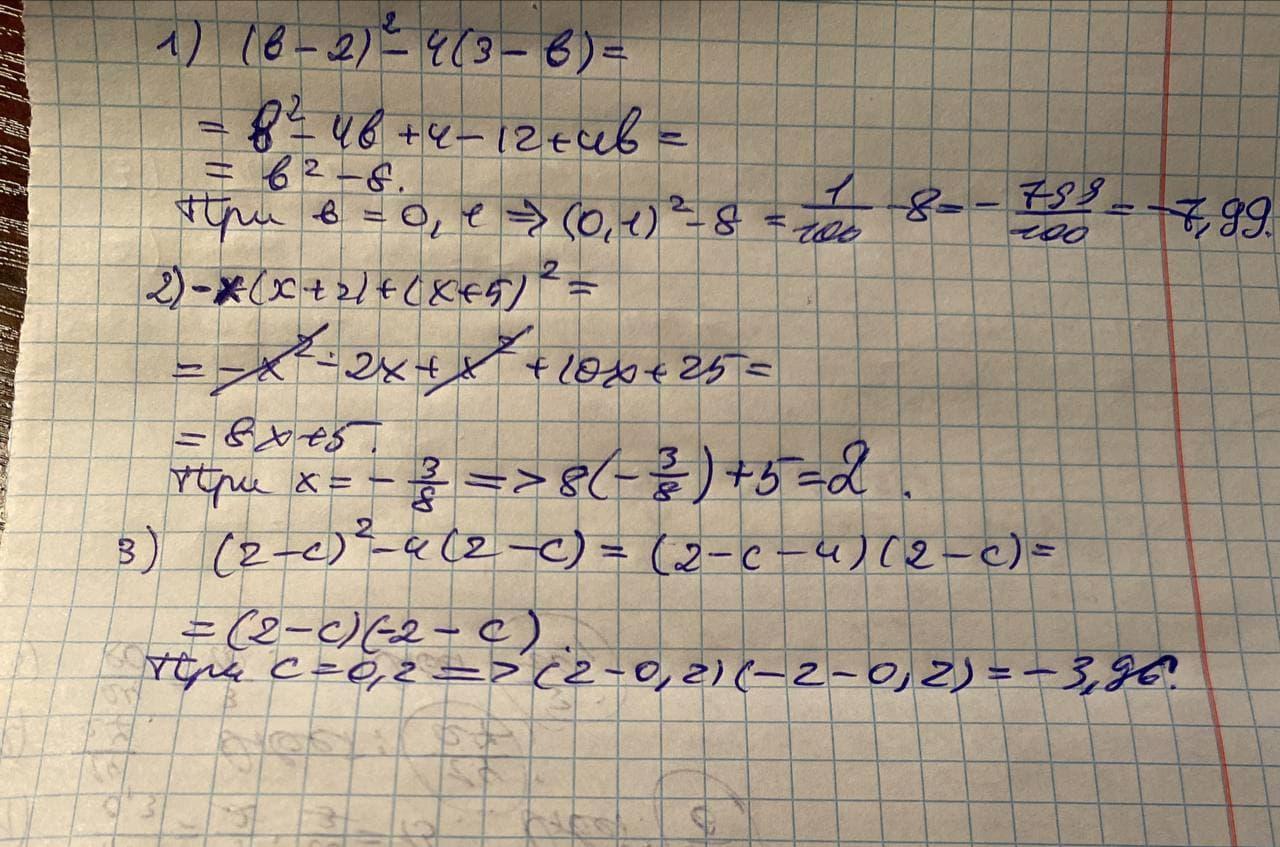 1) (в-2)²-4(3-в)=
= в²-4в+4-12+4в=
= в²-8.
При в=0,1 => (0,1)²-8 = 1/100 -8 = - 799/100 = -7,99.
2) -x(x+2)+(x+5)²=
= -x²-2x+x²+10x+25=
= 8x+5.
При x = -3/8 => 8(-3/8)+5=2.
3) (2-c)²-4(2-c) = (2-c-4)(2-c)=
=(2-c)(-2-c).
При c=0,2 => (2-0,2)(-2-0,2) = -3,96.